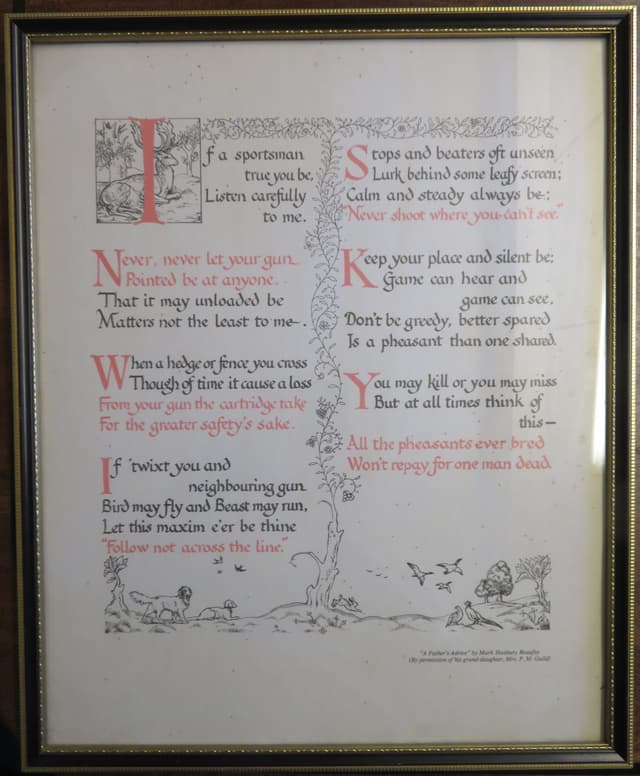 If a sportsman
true you be,
Listen carefully
to me.
Never, never let your gun
Pointed be at anyone.
That it may unloaded be
Matters not the least to me.
When a hedge or fence you cross
Though of time it cause a loss
From your gun the cartridge take
For the greater safety's sake.
If 'twixt you and
neighbouring gun
Bird may fly and Beast may run,
Let this maxim e'er be thine
"Follow not across the line."
Stops and beaters oft unseen
Lurk behind some leafy screen;
Calm and steady always be:
"Never shoot where you can't see."
Keep your place and silent be;
Game can hear and
game can see,
Don't be greedy, better spared
Is a pheasant than one shared.
You may kill or you may miss
But at all times think of
this—
All the pheasants ever bred
Won't repay for one man dead.
"A Father's Advice" by Mark Hanbury Beaufoy
(By permission of his grand-daughter, Mrs. P. M. Guild)